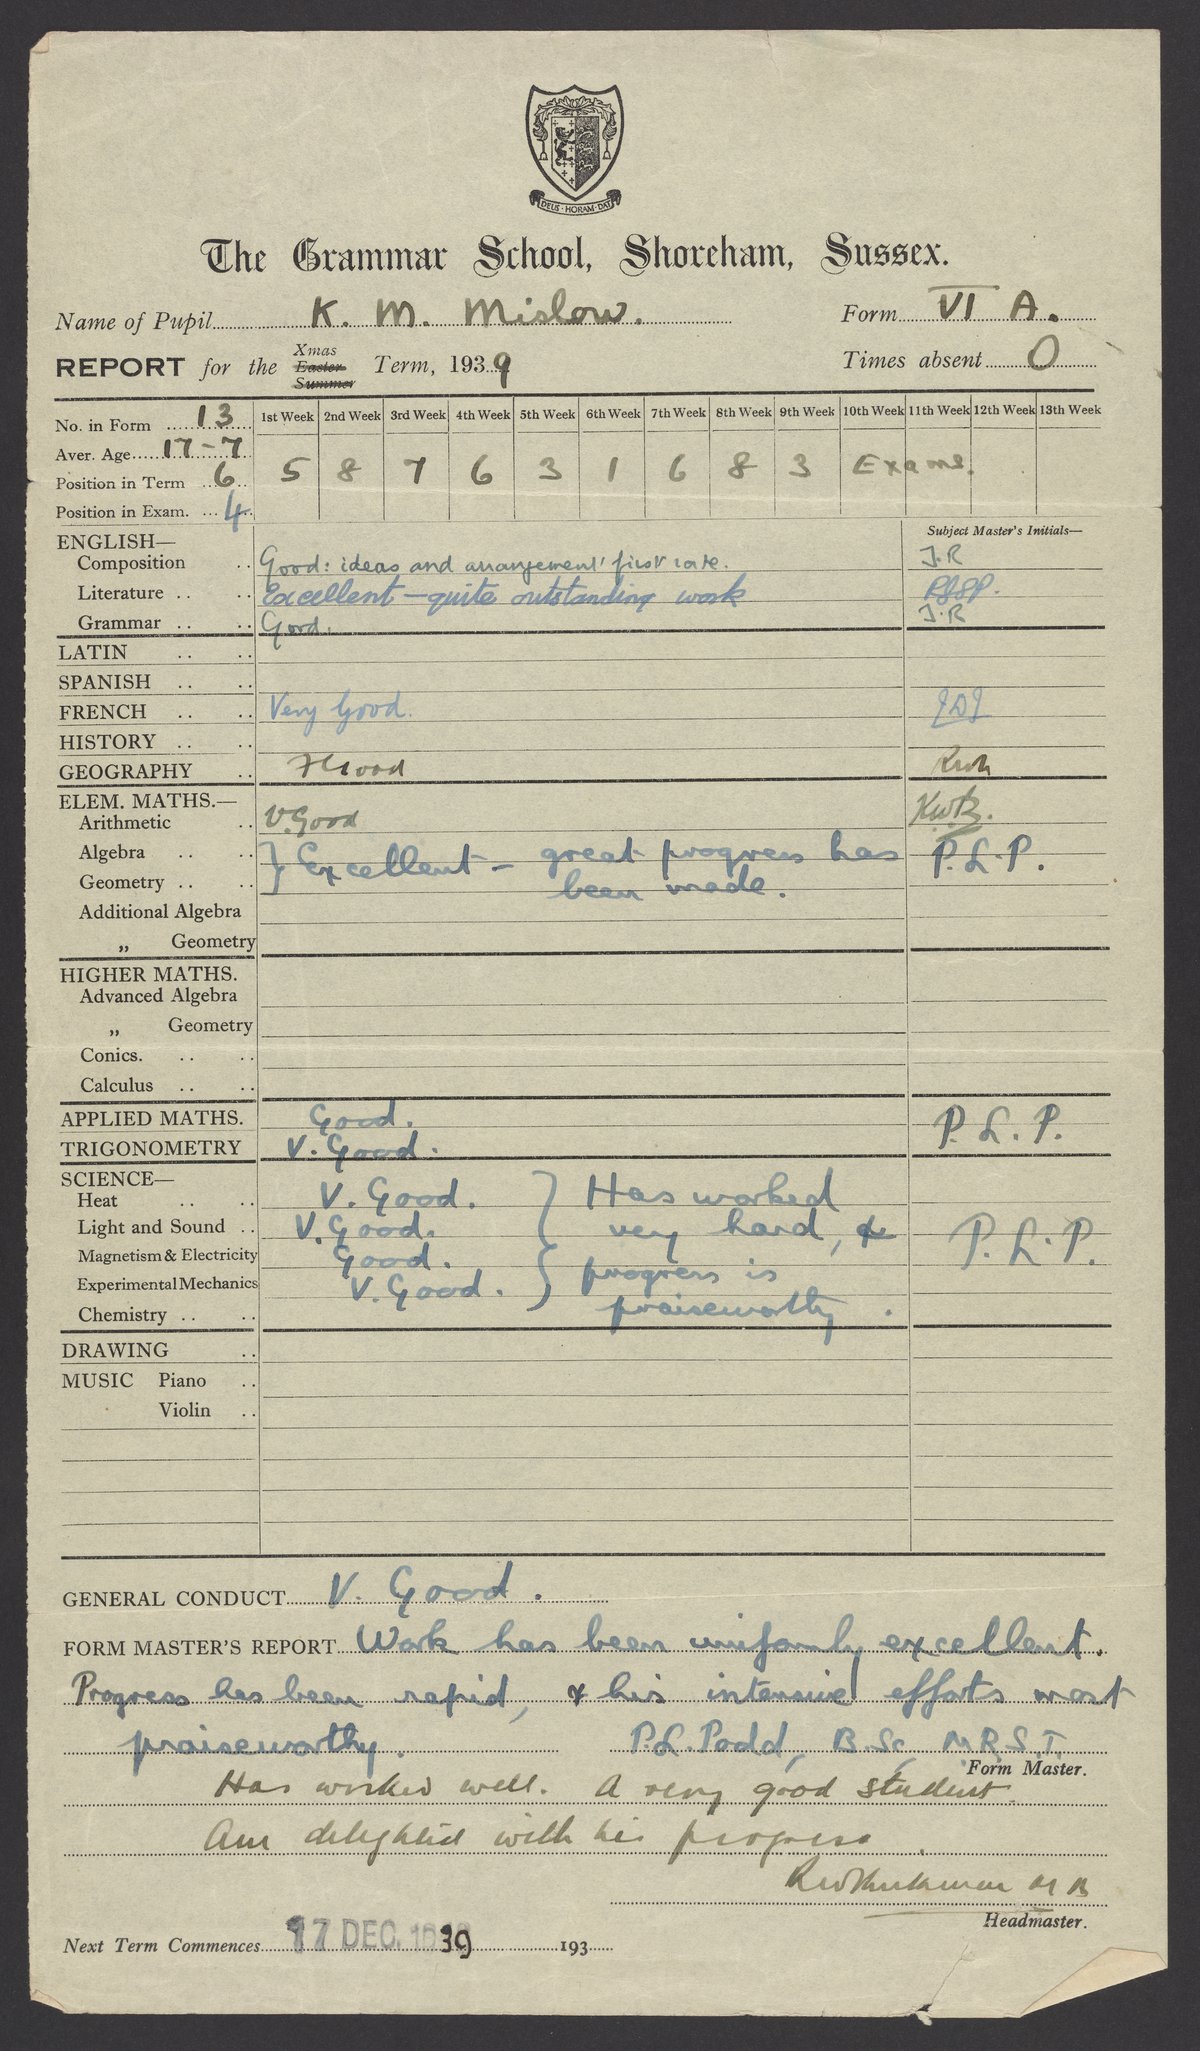 DEUS · HORAM · DAT
The Grammar School, Shoreham, Sussex.
Name of Pupil K. M. Mislow. Form VI A.
REPORT for the Xmas Easter Summer Term, 1939 Times absent 0
No. in Form 13 1st Week 2nd Week 3rd Week 4th Week 5th Week 6th Week 7th Week 8th Week 9th Week 10th Week 11th Week 12th Week 13th Week
Aver. Age 17-7
Position in Term 6 5 8 7 6 3 1 6 8 3 Exams.
Position in Exam. 4
ENGLISH— Subject Master's Initials—
Composition .. Good: ideas and arrangement first rate. J.R
Literature .. .. Excellent — quite outstanding work
Grammar .. .. Good. J.R
LATIN .. ..
SPANISH .. ..
FRENCH .. .. Very Good.
HISTORY .. ..
GEOGRAPHY .. Good
ELEM. MATHS.—
Arithmetic .. V. Good
Algebra .. .. } Excellent — great progress has P.L.P.
Geometry .. .. been made.
Additional Algebra
„ Geometry
HIGHER MATHS.
Advanced Algebra
„ Geometry
Conics. .. ..
Calculus .. ..
APPLIED MATHS. Good. P.L.P.
TRIGONOMETRY V. Good.
SCIENCE—
Heat .. .. V. Good. } Has worked
Light and Sound .. V. Good. very hard, & P.L.P.
Magnetism & Electricity Good. progress is
Experimental Mechanics V. Good. praiseworthy.
Chemistry .. ..
DRAWING ..
MUSIC Piano ..
Violin ..
GENERAL CONDUCT V. Good.
FORM MASTER'S REPORT Work has been uniformly excellent.
Progress has been rapid, & his intensive efforts most
praiseworthy. P.L. Podd, B.Sc, M.R.S.T.
Form Master.
Has worked well. A very good student.
Am delighted with his progress.
Headmaster.
Next Term Commences 17 DEC. 1939 193